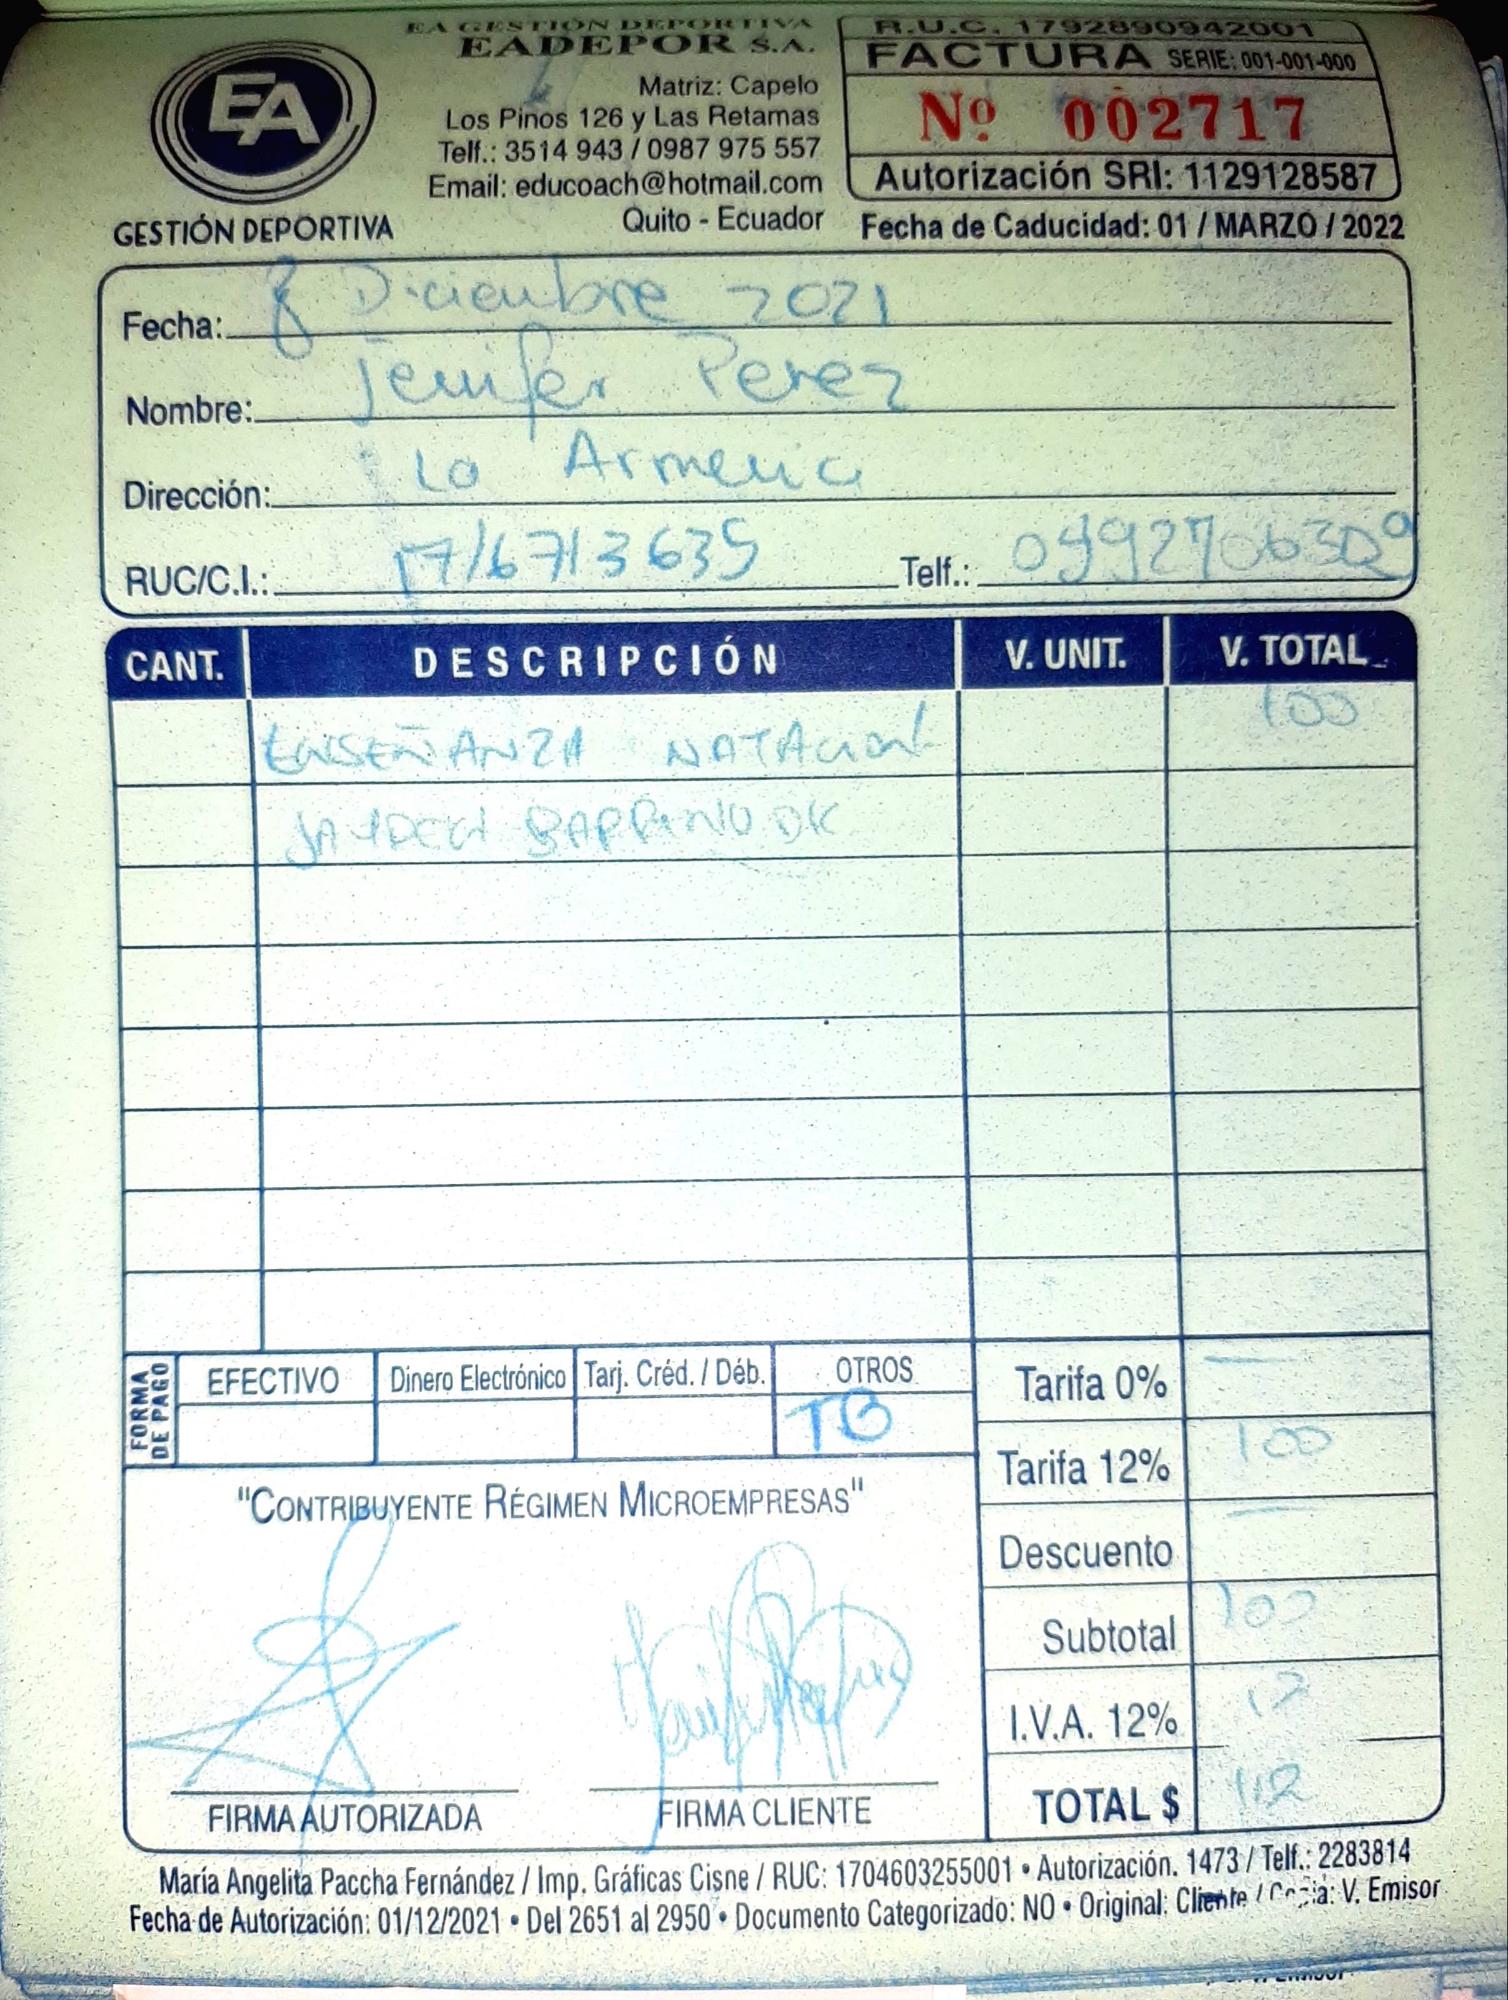 EA GESTIÓN DEPORTIVA
EADEPOR S.A.
Matriz: Capelo
Los Pinos 126 y Las Retamas
Telf.: 3514 943 / 0987 975 557
Email: educoach@hotmail.com
Quito - Ecuador
EA
GESTIÓN DEPORTIVA
R.U.C. 1792890942001
FACTURA SERIE: 001-001-000
Nº 002717
Autorización SRI: 1129128587
Fecha de Caducidad: 01 / MARZO / 2022
Fecha: 8 Diciembre 2021
Nombre: Jenifer Perez
Dirección: La Armenia
RUC/C.I.: 1716713635 Telf.:
CANT. DESCRIPCIÓN V. UNIT. V. TOTAL
ENSEÑANZA NATACION 100
FORMA DE PAGO
EFECTIVO Dinero Electrónico Tarj. Créd. / Déb. OTROS
TB
Tarifa 0% —
Tarifa 12% 100
Descuento —
Subtotal 100
I.V.A. 12% 12
TOTAL $ 112
"CONTRIBUYENTE RÉGIMEN MICROEMPRESAS"
FIRMA AUTORIZADA FIRMA CLIENTE
María Angelita Paccha Fernández / Imp. Gráficas Cisne / RUC: 1704603255001 • Autorización. 1473 / Telf.: 2283814
Fecha de Autorización: 01/12/2021 • Del 2651 al 2950 • Documento Categorizado: NO • Original: Cliente / Copia: V. Emisor